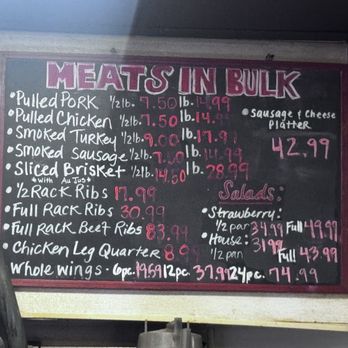 MEATS IN BULK
•Pulled Pork 1/2lb. 7.50 lb. 14.99
•Pulled Chicken 1/2lb. 7.50 lb. 14.99
•Smoked Turkey 1/2lb. 9.00 lb. 17.9
•Smoked Sausage 1/2lb. 7.50 lb. 14.99
•Sliced Brisket 1/2lb. 14.50 lb. 28.99
*with Au Jus*
•1/2 Rack Ribs 17.99
•Full Rack Ribs 30.99
•Full Rack Beef Ribs 83.99
•Chicken Leg Quarter 8.99
Whole wings - 6pc. 19.59 12pc. 37.99 24pc. 74.99
•Sausage & Cheese
Platter
42.99
Salads:
•Strawberry:
1/2 pan 34.99 Full 49.99
•House: 31.99
1/2 pan Full 43.99